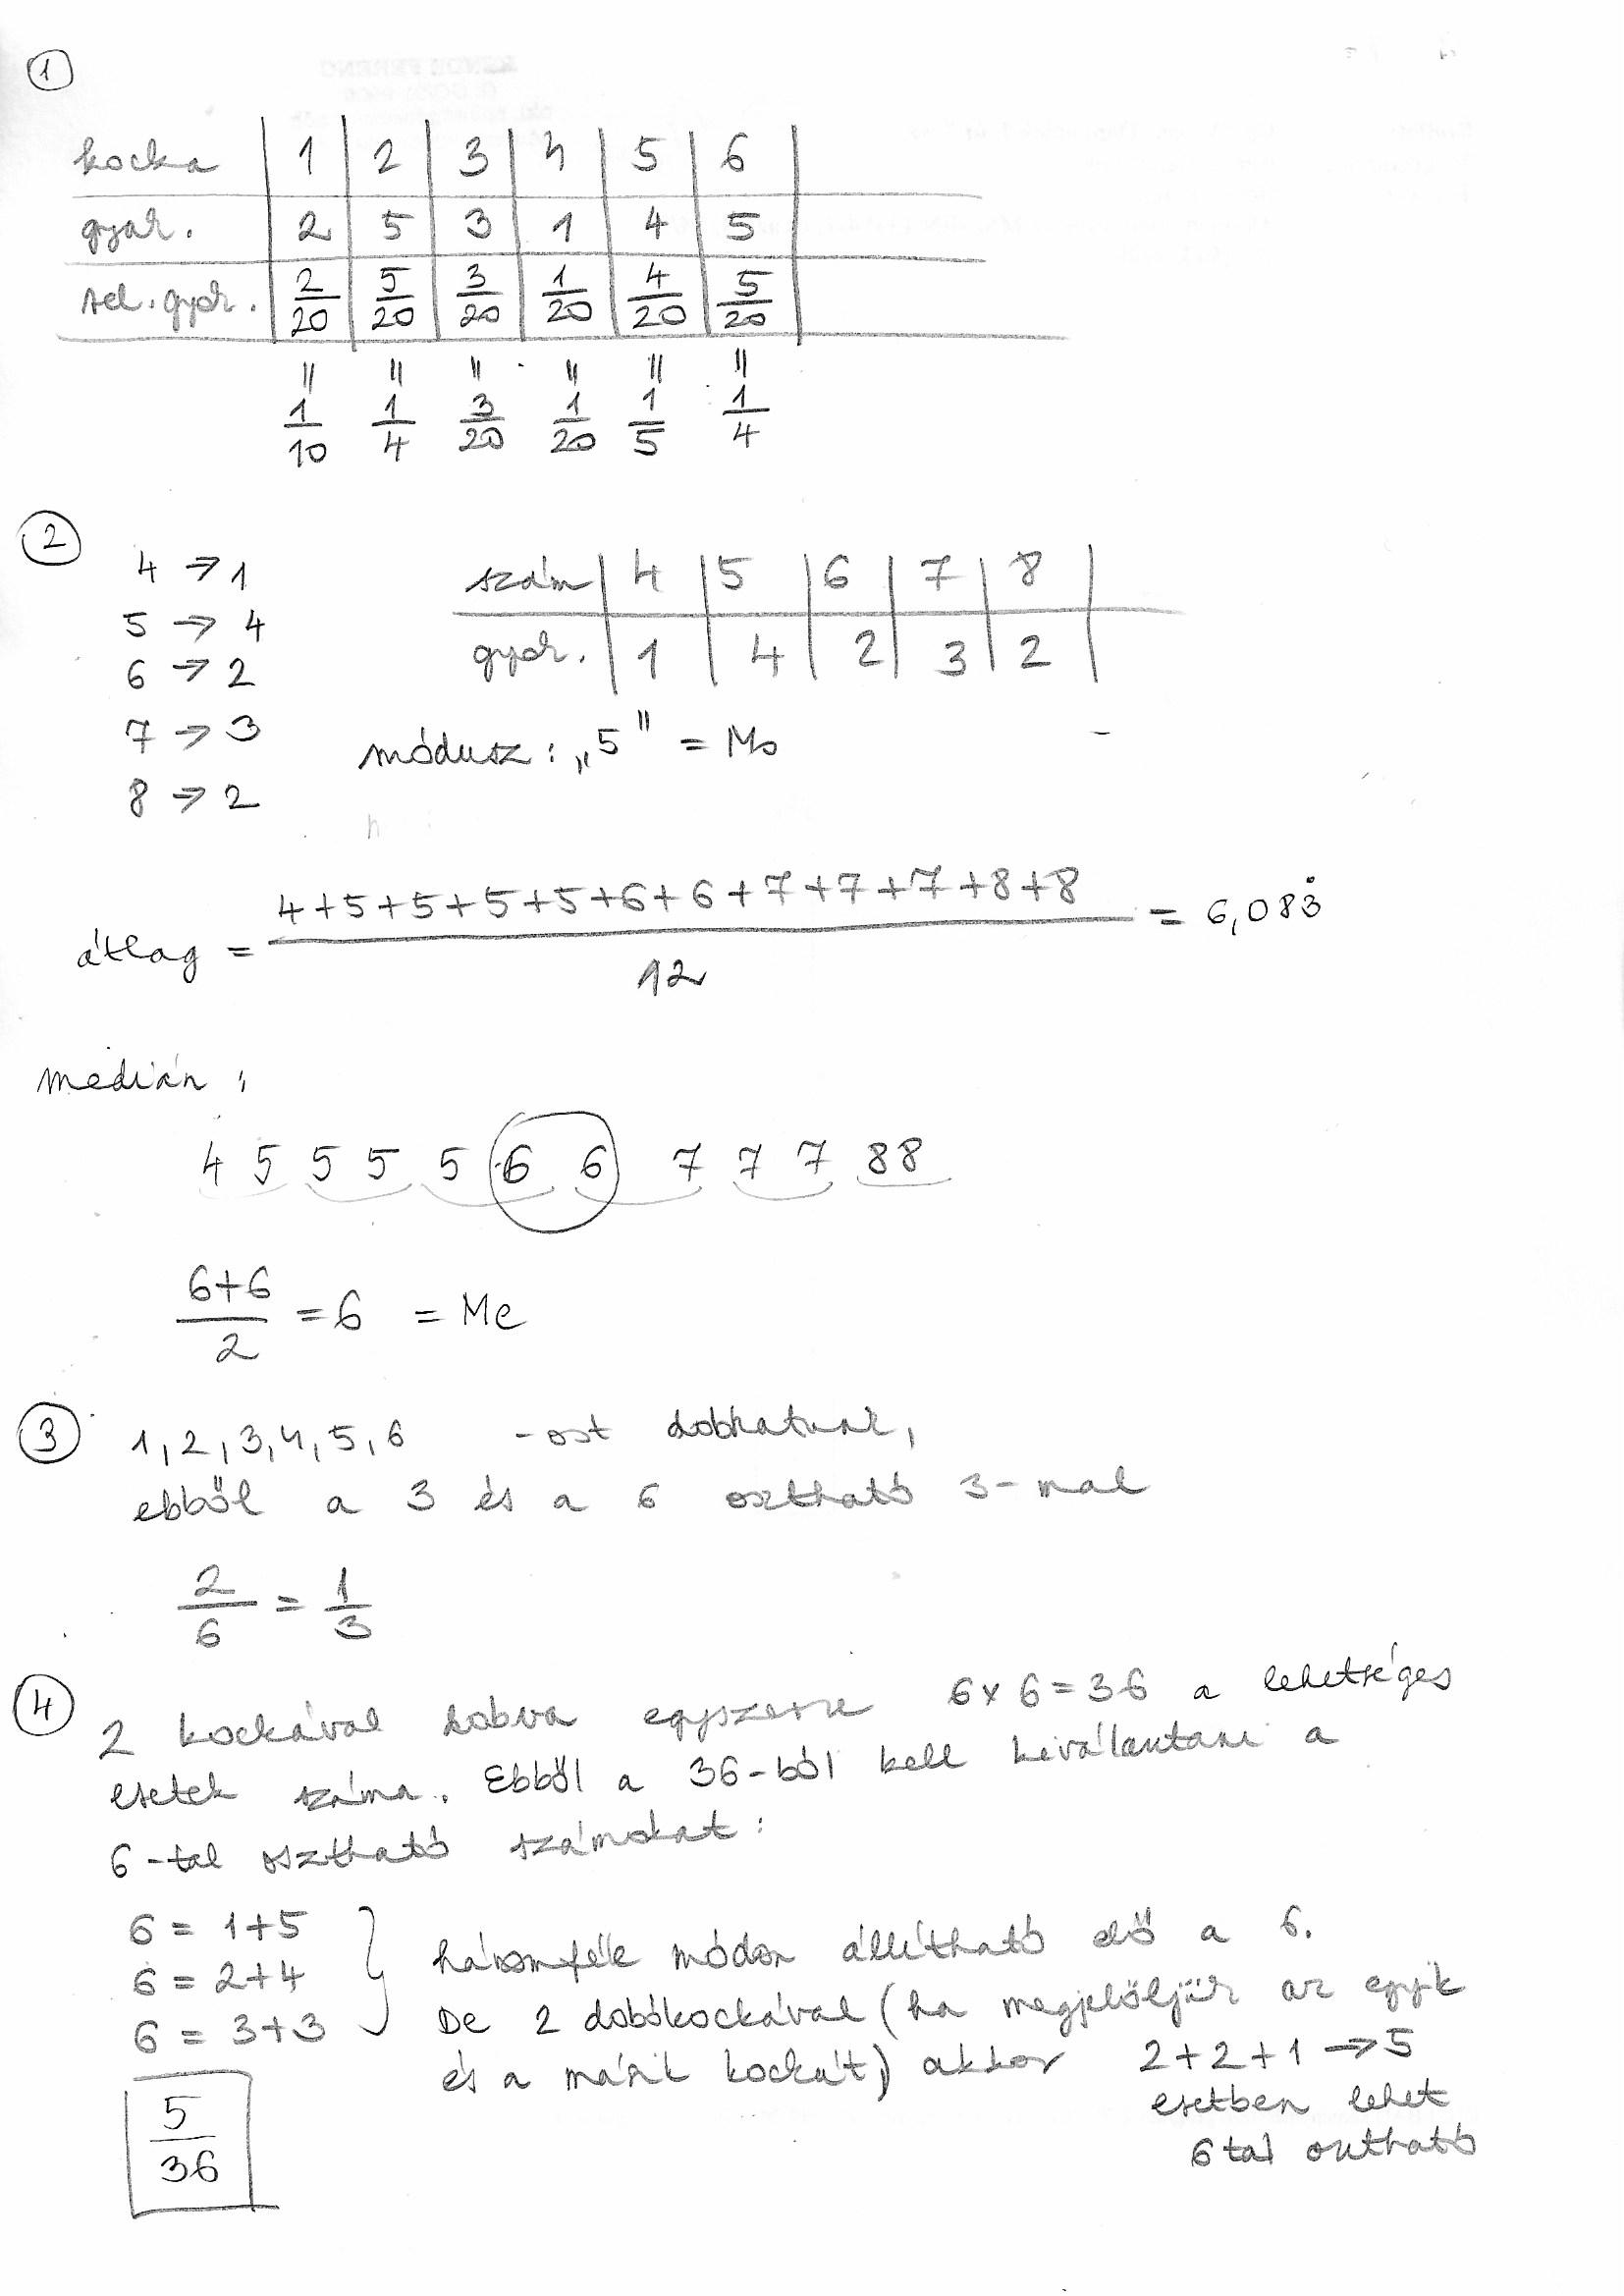 1
kocka 1 2 3 4 5 6
gyak. 2 5 3 1 4 5
rel. gyak. 2/20 5/20 3/20 1/20 4/20 5/20
= = = = = =
1/10 1/4 3/20 1/20 1/5 1/4
2
4 → 1
5 → 4
6 → 2
7 → 3
8 → 2
szám 4 5 6 7 8
gyak. 1 4 2 3 2
módusz: „5" = Mo
átlag = (4+5+5+5+5+6+6+7+7+7+8+8)/12 = 6,083̇
medián:
4 5 5 5 5 6 6 7 7 7 8 8
(6+6)/2 = 6 = Me
3
1, 2, 3, 4, 5, 6 -ost dobhatunk,
ebből a 3 és a 6 osztható 3-mal
2/6 = 1/3
4
2 kockával dobva egyszerre 6x6=36 a lehetséges
esetek száma. Ebből a 36-ból kell kiválasztani a
6-tal osztható számokat:
6 = 1+5
6 = 2+4
6 = 3+3
háromféle módon állítható elő a 6.
De 2 dobókockával (ha megjelöljük az egyik
és a másik kockát) akkor 2+2+1 → 5
esetben lehet
6 tal osztható
5/36